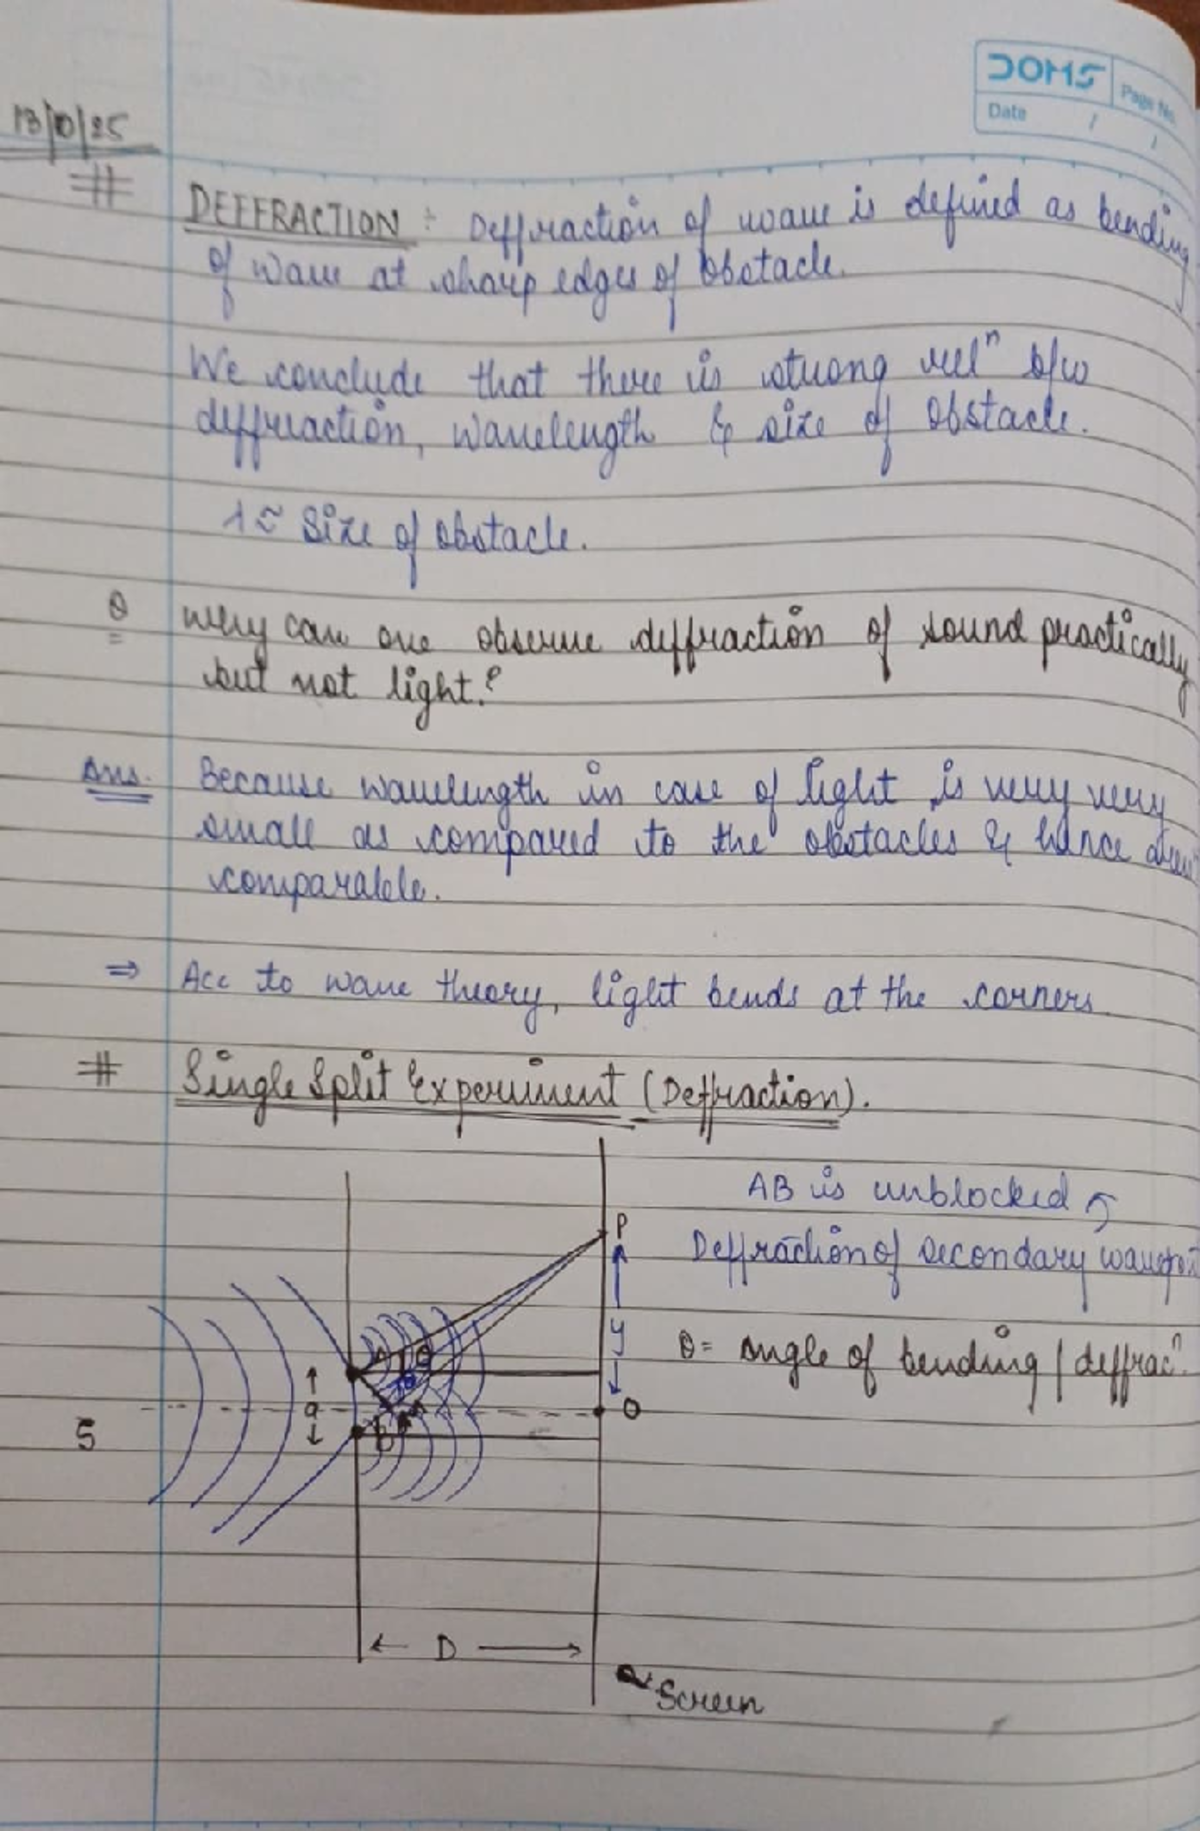 DOMS
Page No.
Date / /
13/10/25
# DEFFRACTION : Deffraction of wave is defined as bending
of wave at sharp edges of obstacle.
We conclude that there is strong relⁿ b/w
deffraction, wavelength & size of obstacle.
λ ≈ Size of obstacle.
Q Why can one observe deffraction of sound practically
but not light?
Ans. Because wavelength in case of light is very very
small as compared to the obstacles & hence
comparable.
⇒ Acc to wave theory, light bends at the corners
# Single Split Experiment (Deffraction).
AB is unblocked
Deffraction of secondary
P
y
θ = angle of bending / deffracⁿ.
A
θ
a
O
S
B
← D →
Screen